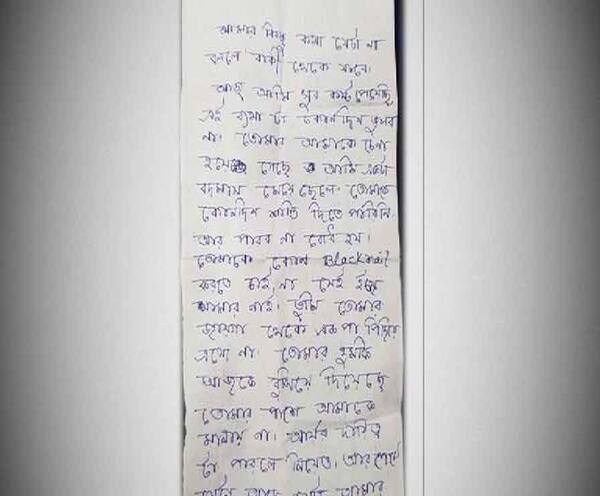 আমার কিছু কথা যেটা না
বললে বাকী থেকে যাবে।
আজ আমি খুব কষ্ট পেয়েছি
এই ব্যথা টা কোনদিন ভুলব
না। তোমার আমাকে চেনা
হয়ে গেছে আমি একটা
বদমায় মেয়েছেলে। তোমাকে
কোনদিন শান্তি দিতে পারিনি
আর পারব না বোধ হয়।
তোমাকে কোন Blackmail
করতে চাই না সেই ইচ্ছে
আমার নাই। তুমি তোমার
জায়গা থেকে এক পা পিছিয়ে
এসো না। তোমার হুমকি
আজকে বুঝিয়ে দিয়েছে
তোমার পাশে আমাকে
মানায় না। দায়িত্ব
টা পারলে নিয়েও, আর